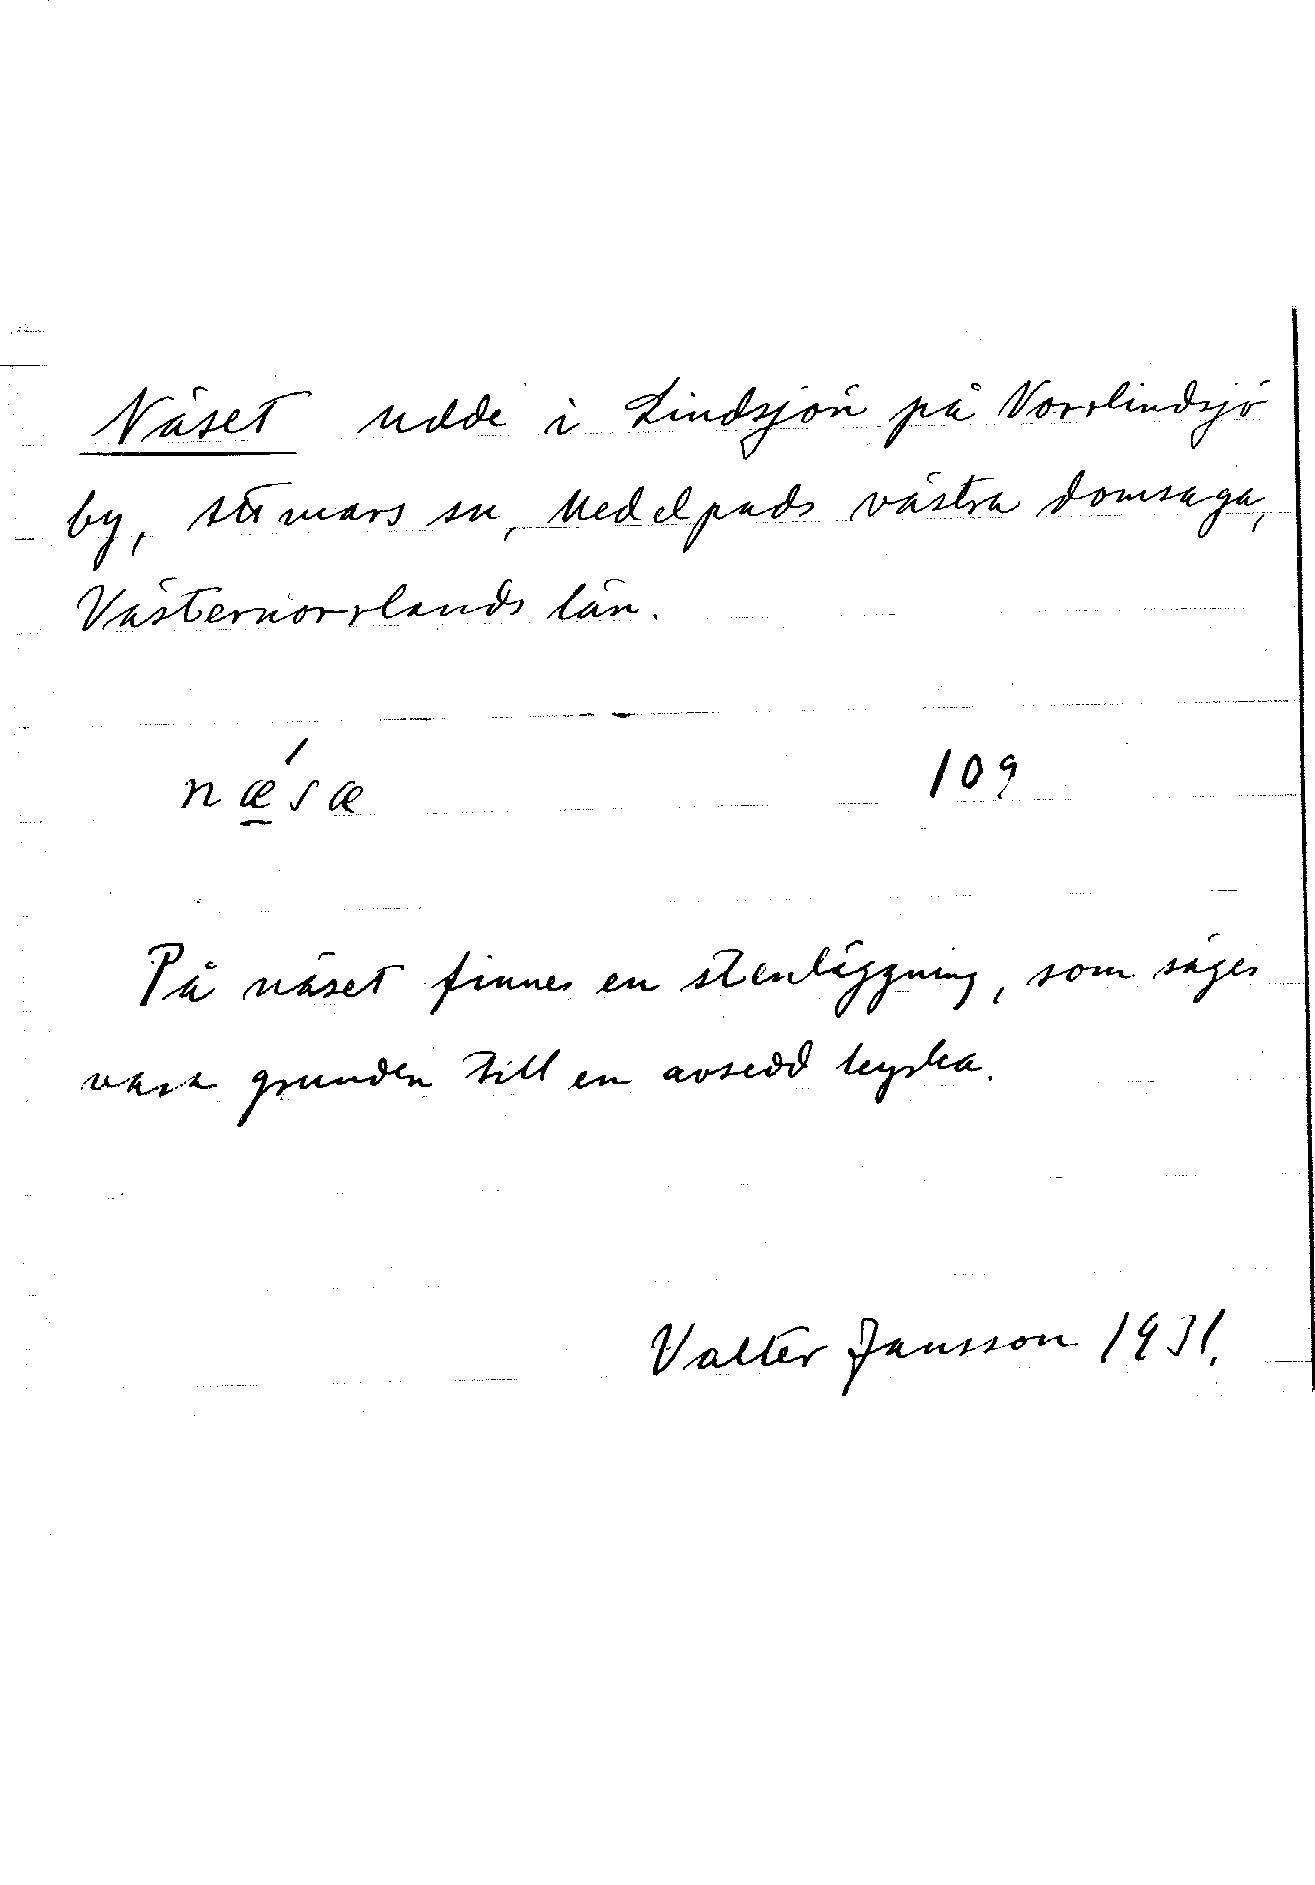 Näset udde i Lindsjön på Norrlindsjö
by, Stii mars sn, Medelpads västra domsaga,
Västernorrlands län.
næ´sæ 109
På näset finnes en stenläggning, som säges
vara grunden till en avsedd kyrka.
Valter Jansson 1931.